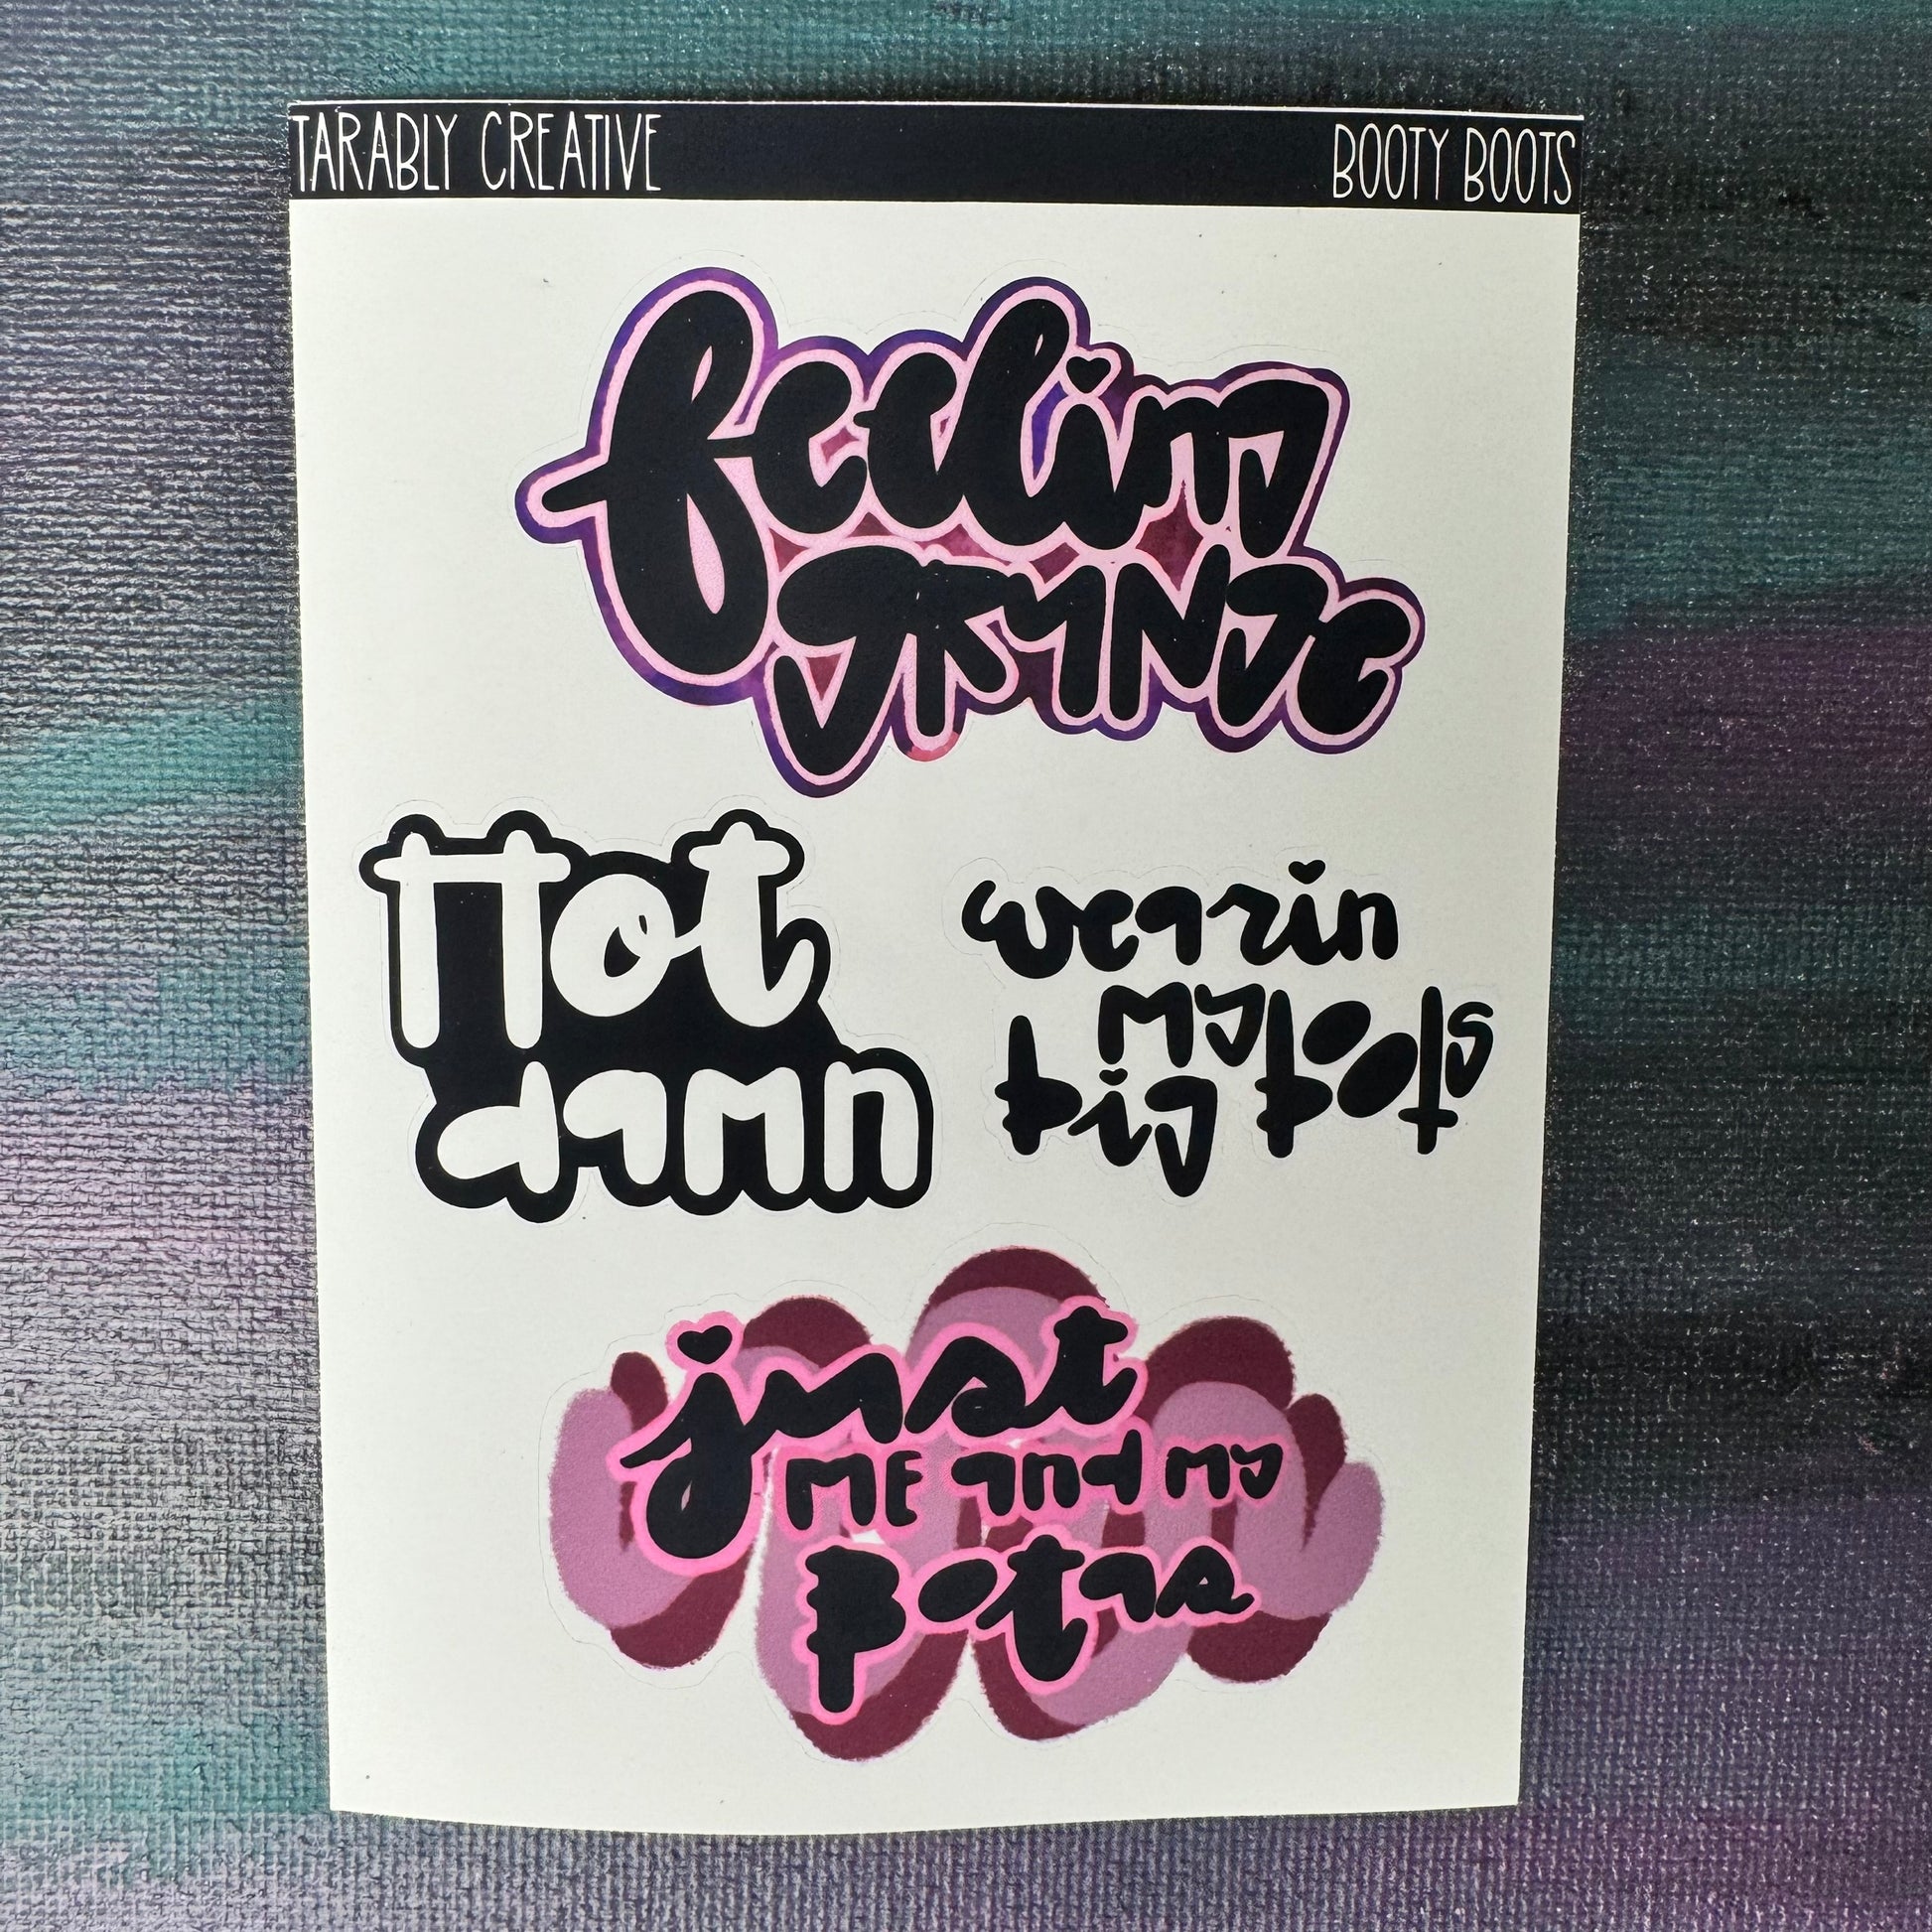 TARABLY CREATIVE BOOTY BOOTS
feeling
GRUNGE
Hot
damn
wearin
my
big boots
just
ME and my
Botas